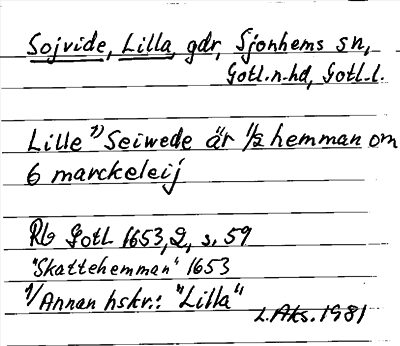 Sojvide, Lilla, gdr, Sjonhems sn,
Gotl.n-hd, Gotl.l.
Lille 1) Seiwede är 1/2 hemman om
6 marckeleij
Rb Gotl 1653,2, s. 59
"Skattehemman" 1653
1/ Annan hskr.: "Lilla"
L.Aks. 1981